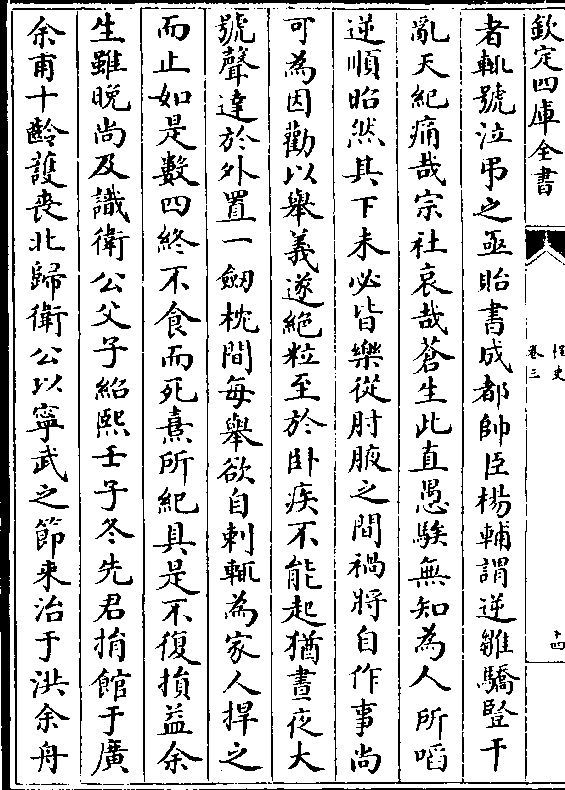 欽定四庫全書
桯史
卷三
十四
者輒號泣弔之亟貽書成都帥臣楊輔謂逆雛驕豎干
亂天紀痛哉宗社哀哉蒼生此直愚騃無知為人所啗
逆順昭然其下未必皆樂從肘腋之間禍將自作事尚
可為因勸以舉義遂絶粒至於卧疾不能起猶晝夜大
號聲達於外置一劒枕間每舉欲自刺輒為家人捍之
而止如是數四終不食而死熹所紀具是不復損益余
生雖晚尚及識衛公父子紹熙壬子冬先君捐館于廣
余甫十齡護喪北歸衛公以寧武之節來治于洪余舟